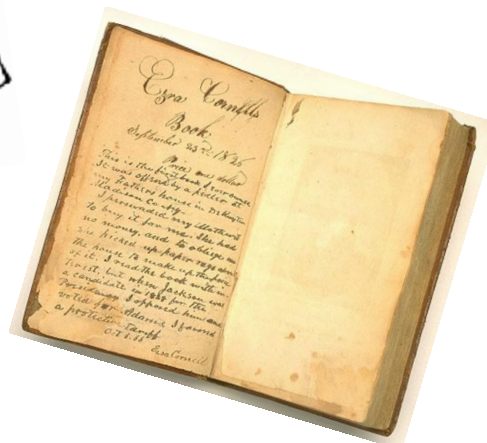 Ezra Cornell's
Book
September 23rd 1826
Price one dollar
This is the first book I ever owned
It was offered by a pedler at
my Fathers house in DeRuyter
Madison County.
I persuaded my Mother
to buy it for me. She had
no money, and to oblige me
she picked up paper rags
the house to make up the
of it. I read the book with
but when Jackson was
a candidate in 1828 for the
Presidency I opposed him and
voted for Adams. I favored
a protective tariff
Oct
Ezra Cornell